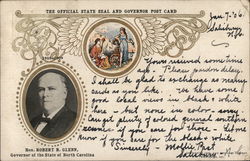 THE OFFICIAL STATE SEAL AND GOVERNOR POST CARD
Jan 7 - '06
Salisbury,
N.C.
Yours received sometime
ago. Please pardon delay.
I shall be glad to exchange as many
cards as you like. We have some
good local views in black & white
Have none in color.
Can get plenty of colored general southern
scenes if you care for those. Let me
know if you care for the black & white.
Sincerely, Mollie
Hon. ROBERT B. GLENN,
Governor of the State of North Carolina